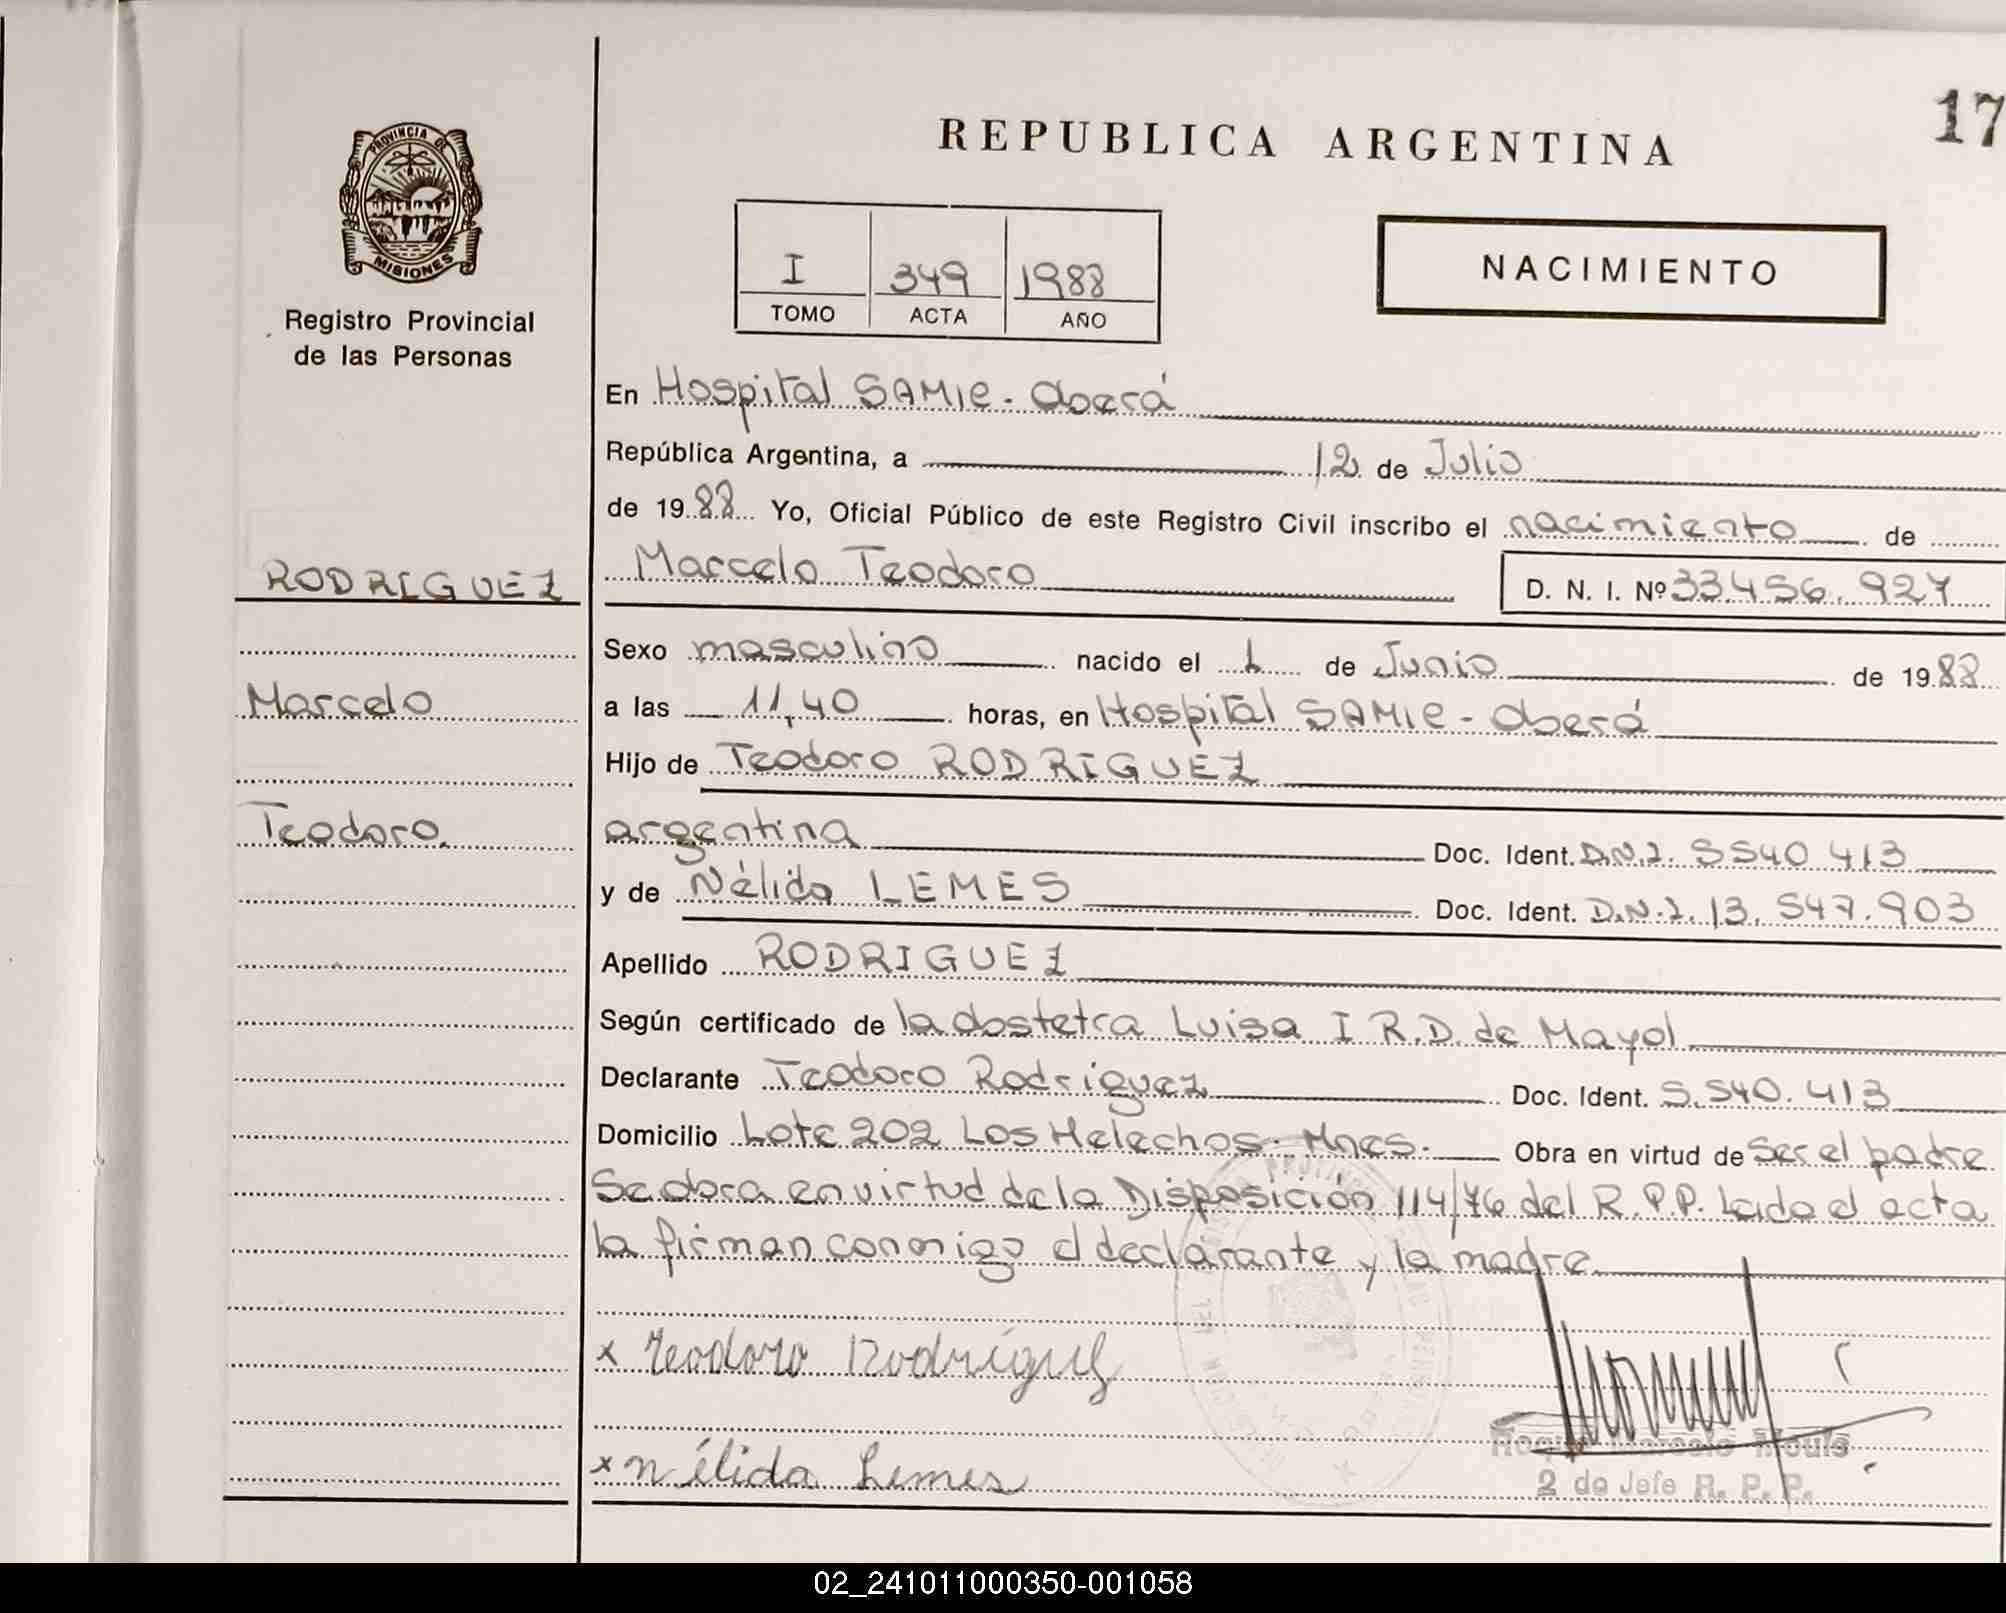 17
REPUBLICA ARGENTINA
PROVINCIA DE
MISIONES
Registro Provincial
de las Personas
I 349 1988
TOMO ACTA AÑO
NACIMIENTO
En Hospital SAMIC - Oberá
República Argentina, a 12 de Julio
de 1988 Yo, Oficial Público de este Registro Civil inscribo el nacimiento de
RODRIGUEZ
Marcelo Teodoro D. N. I. Nº 33.456.927
Sexo masculino nacido el 1 de Junio de 1988
Marcelo
a las 11,40 horas, en Hospital SAMIC - Oberá
Hijo de Teodoro RODRIGUEZ
Teodoro.
argentina Doc. Ident. D.N.I. 5540413
y de Nélida LEMES Doc. Ident. D.N.I. 13.547.903
Apellido RODRIGUEZ
Según certificado de la obstetra Luisa I R.D. de Mayol
Declarante Teodoro Rodriguez Doc. Ident. 5.540.413
Domicilio Lote 202 Los Helechos - Mnes. Obra en virtud de ser el padre
Se obra en virtud de la Disposición 114/76 del R.P.P. Leida el acta
la firman conmigo el declarante y la madre.
x Teodoro Rodríguez
x Nélida Lemes
Marcelo
2 do Jefe R. P. P.
02_241011000350-001058